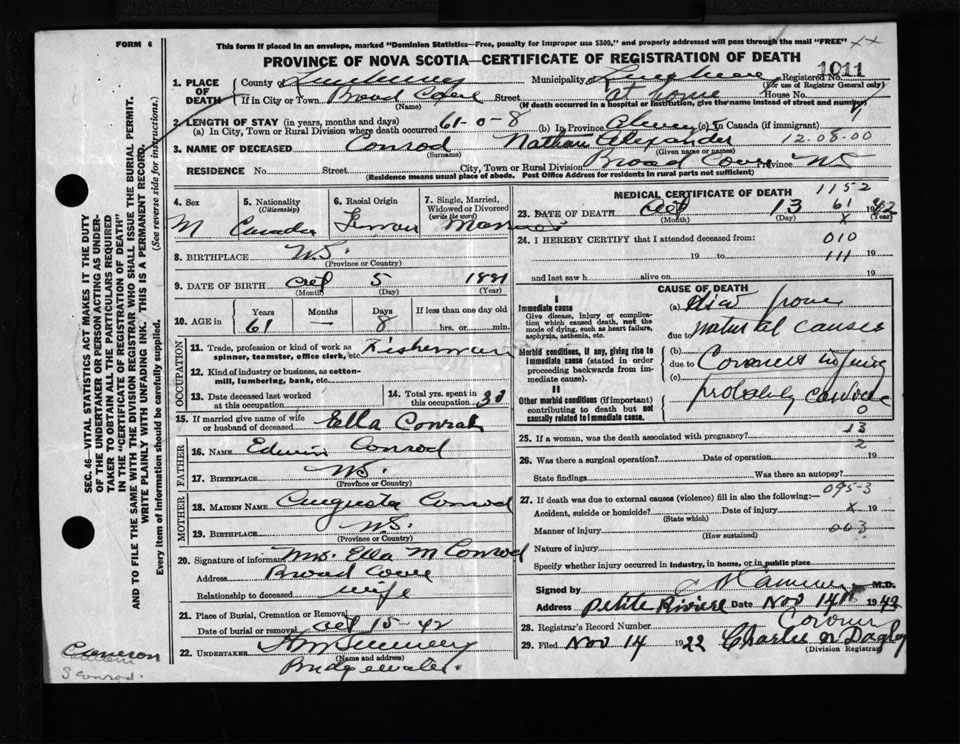 FORM 6
This form if placed in an envelope, marked "Dominion Statistics—Free, penalty for improper use $300," and properly addressed will pass through the mail "FREE"
PROVINCE OF NOVA SCOTIA—CERTIFICATE OF REGISTRATION OF DEATH
1011
1. PLACE OF DEATH County of Lunenburg Municipality of Lunenburg Registered No.
(For use of Registrar General only)
If in City or Town Broad Cove Street at home House No.
(Name) (If death occurred in a hospital or institution, give the name instead of street and number)
2. LENGTH OF STAY (in years, months and days)
(a) In City, Town or Rural Division where death occurred 61-0-8 (b) In Province Always (c) In Canada (if immigrant)
12-08-00
3. NAME OF DECEASED Conrod Nathan Alexander
(Surname) (Given name or names)
RESIDENCE No. Street City, Town or Rural Division Broad Cove Province NS
(Residence means usual place of abode. Post Office Address for residents in rural parts not sufficient)
4. Sex M
5. Nationality (Citizenship) Canada
6. Racial Origin German
7. Single, Married, Widowed or Divorced (write the word) Married
8. BIRTHPLACE N.S.
(Province or Country)
9. DATE OF BIRTH Oct 5 1881
(Month) (Day) (Year)
10. AGE in Years Months Days If less than one day old
61 — 8 hrs. or min.
OCCUPATION
11. Trade, profession or kind of work as spinner, teamster, office clerk, etc. Fisherman
12. Kind of industry or business, as cotton-mill, lumbering, bank, etc.
13. Date deceased last worked at this occupation
14. Total yrs. spent in this occupation 30
15. If married give name of wife or husband of deceased Ella Conrad
FATHER
16. NAME Edwin Conrod
17. BIRTHPLACE N.S.
(Province or Country)
MOTHER
18. MAIDEN NAME Augusta Conrod
19. BIRTHPLACE N.S.
(Province or Country)
20. Signature of informant Mrs. Ella M Conrod
Address Broad Cove
Relationship to deceased wife
21. Place of Burial, Cremation or Removal
Date of burial or removal Oct 15-42
22. UNDERTAKER
(Name and address)
Bridgewater.
MEDICAL CERTIFICATE OF DEATH
1152
23. DATE OF DEATH Oct 13 1942
61
(Month) (Day) (Year)
x
24. I HEREBY CERTIFY that I attended deceased from:
010
19 to 19
111
and last saw h alive on 19
CAUSE OF DEATH
I
Immediate cause
Give disease, injury or complication which caused death, not the mode of dying, such as heart failure, asphyxia, asthenia, etc.
(a) died from
due to natural causes
Morbid conditions, if any, giving rise to immediate cause (stated in order proceeding backwards from immediate cause).
(b)
due to Coroners inquiry
(c)
probably cardiac
II
Other morbid conditions (if important) contributing to death but not causally related to immediate cause.
0
13
25. If a woman, was the death associated with pregnancy?
2
26. Was there a surgical operation? Date of operation 19
State findings Was there an autopsy?
095-3
27. If death was due to external causes (violence) fill in also the following:
Accident, suicide or homicide? Date of injury x 19
(State which)
003
Manner of injury
(How sustained)
Nature of injury
Specify whether injury occurred in industry, in home, or in public place
Signed by Cameron M.D.
Address Petite Riviere Date Nov 14 1942
Coroner
28. Registrar's Record Number
29. Filed Nov 14 1922 Charles N Dagley
(Division Registrar)
SEC. 46—VITAL STATISTICS ACT MAKES IT THE DUTY
OF THE UNDERTAKER OR PERSON ACTING AS UNDER-
TAKER TO OBTAIN ALL THE PARTICULARS REQUIRED
IN THE "CERTIFICATE OF REGISTRATION OF DEATH"
AND TO FILE THE SAME WITH THE DIVISION REGISTRAR WHO SHALL ISSUE THE BURIAL PERMIT.
WRITE PLAINLY WITH UNFADING INK. THIS IS A PERMANENT RECORD
Every item of information should be carefully supplied. (See reverse side for instructions.)
Cameron
S Conrod.